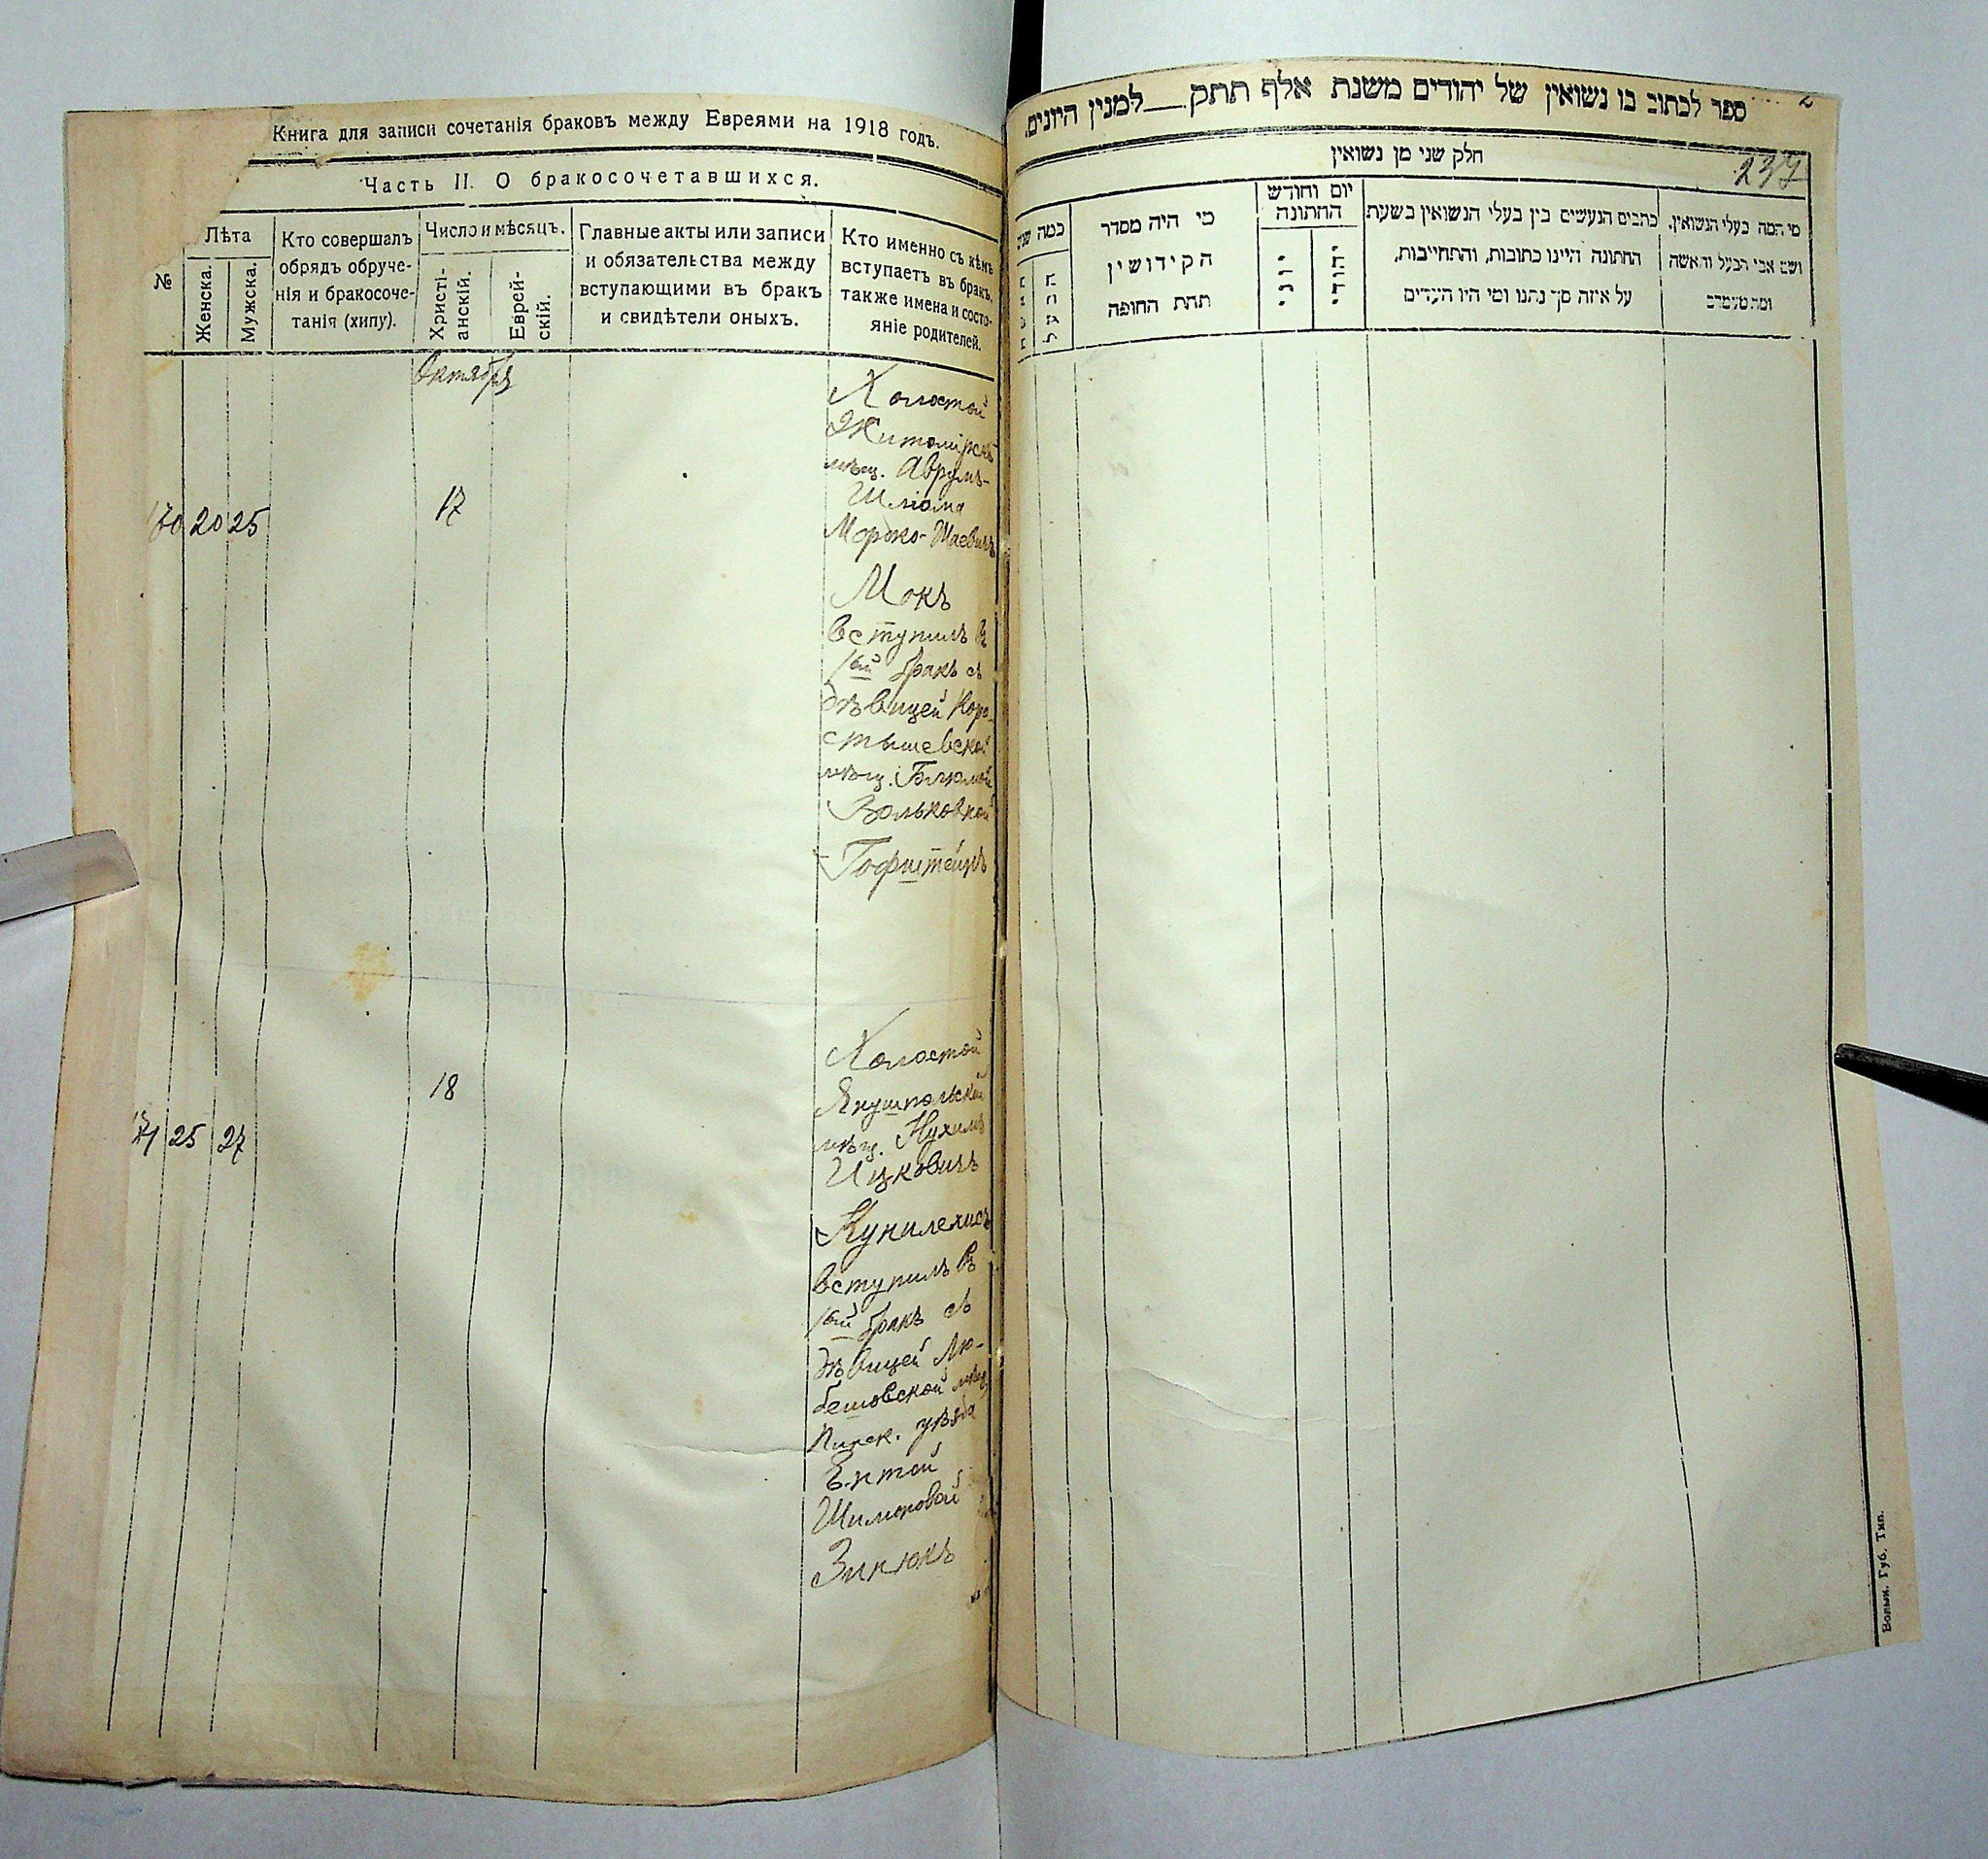 Книга для записи сочетанія браковъ между Евреями на 1918 годъ.
Часть II. О бракосочетавшихся.
№
Лѣта
Женска.
Мужска.
Кто совершалъ
обрядъ обруче-
нія и бракосоче-
танія (хипу).
Число и мѣсяцъ.
Христі-
анскій.
Еврей-
скій.
Главные акты или записи
и обязательства между
вступающими въ бракъ
и свидѣтели оныхъ.
Кто именно съ кѣмъ
вступаетъ въ бракъ,
также имена и состо-
яніе родителей.
Октября
170 20 25
17
Холостой
Житомірскій
мѣщ. Аврумъ-
Шліома
Мошкавичъ
Мокъ
вступилъ въ
1ый бракъ съ
дѣвицей Коро-
стышевской
мѣщ. Блюмой
Вольковной
Гофштейнъ
171 25 27
18
Холостой
Янушпольскій
мѣщ. Нухимъ
Ицковичъ
вступилъ въ
1ый бракъ съ
дѣвицей Лю-
бешовской мѣщ.
Пинск. уѣзда
Ентой
Шимоновой
Зинюкъ
ספר לכתוב בו נשואין של יהודים משנת אלף תתק__למנין היונים.
237
חלק שני מן נשואין
מי המה בעלי הנשואין,
ושם אבי הבעל והאשה
כתבים הנעשים בין בעלי הנשואין בשעת
החתונה היינו כתובות, והתחייבות,
על איזה סך נתנו ומי היו העדים
יום וחודש
החתונה
יהודי
יוני
מי היה מסדר
הקידושין
תחת החופה
כמה שנים
Волын. Губ. Тип.